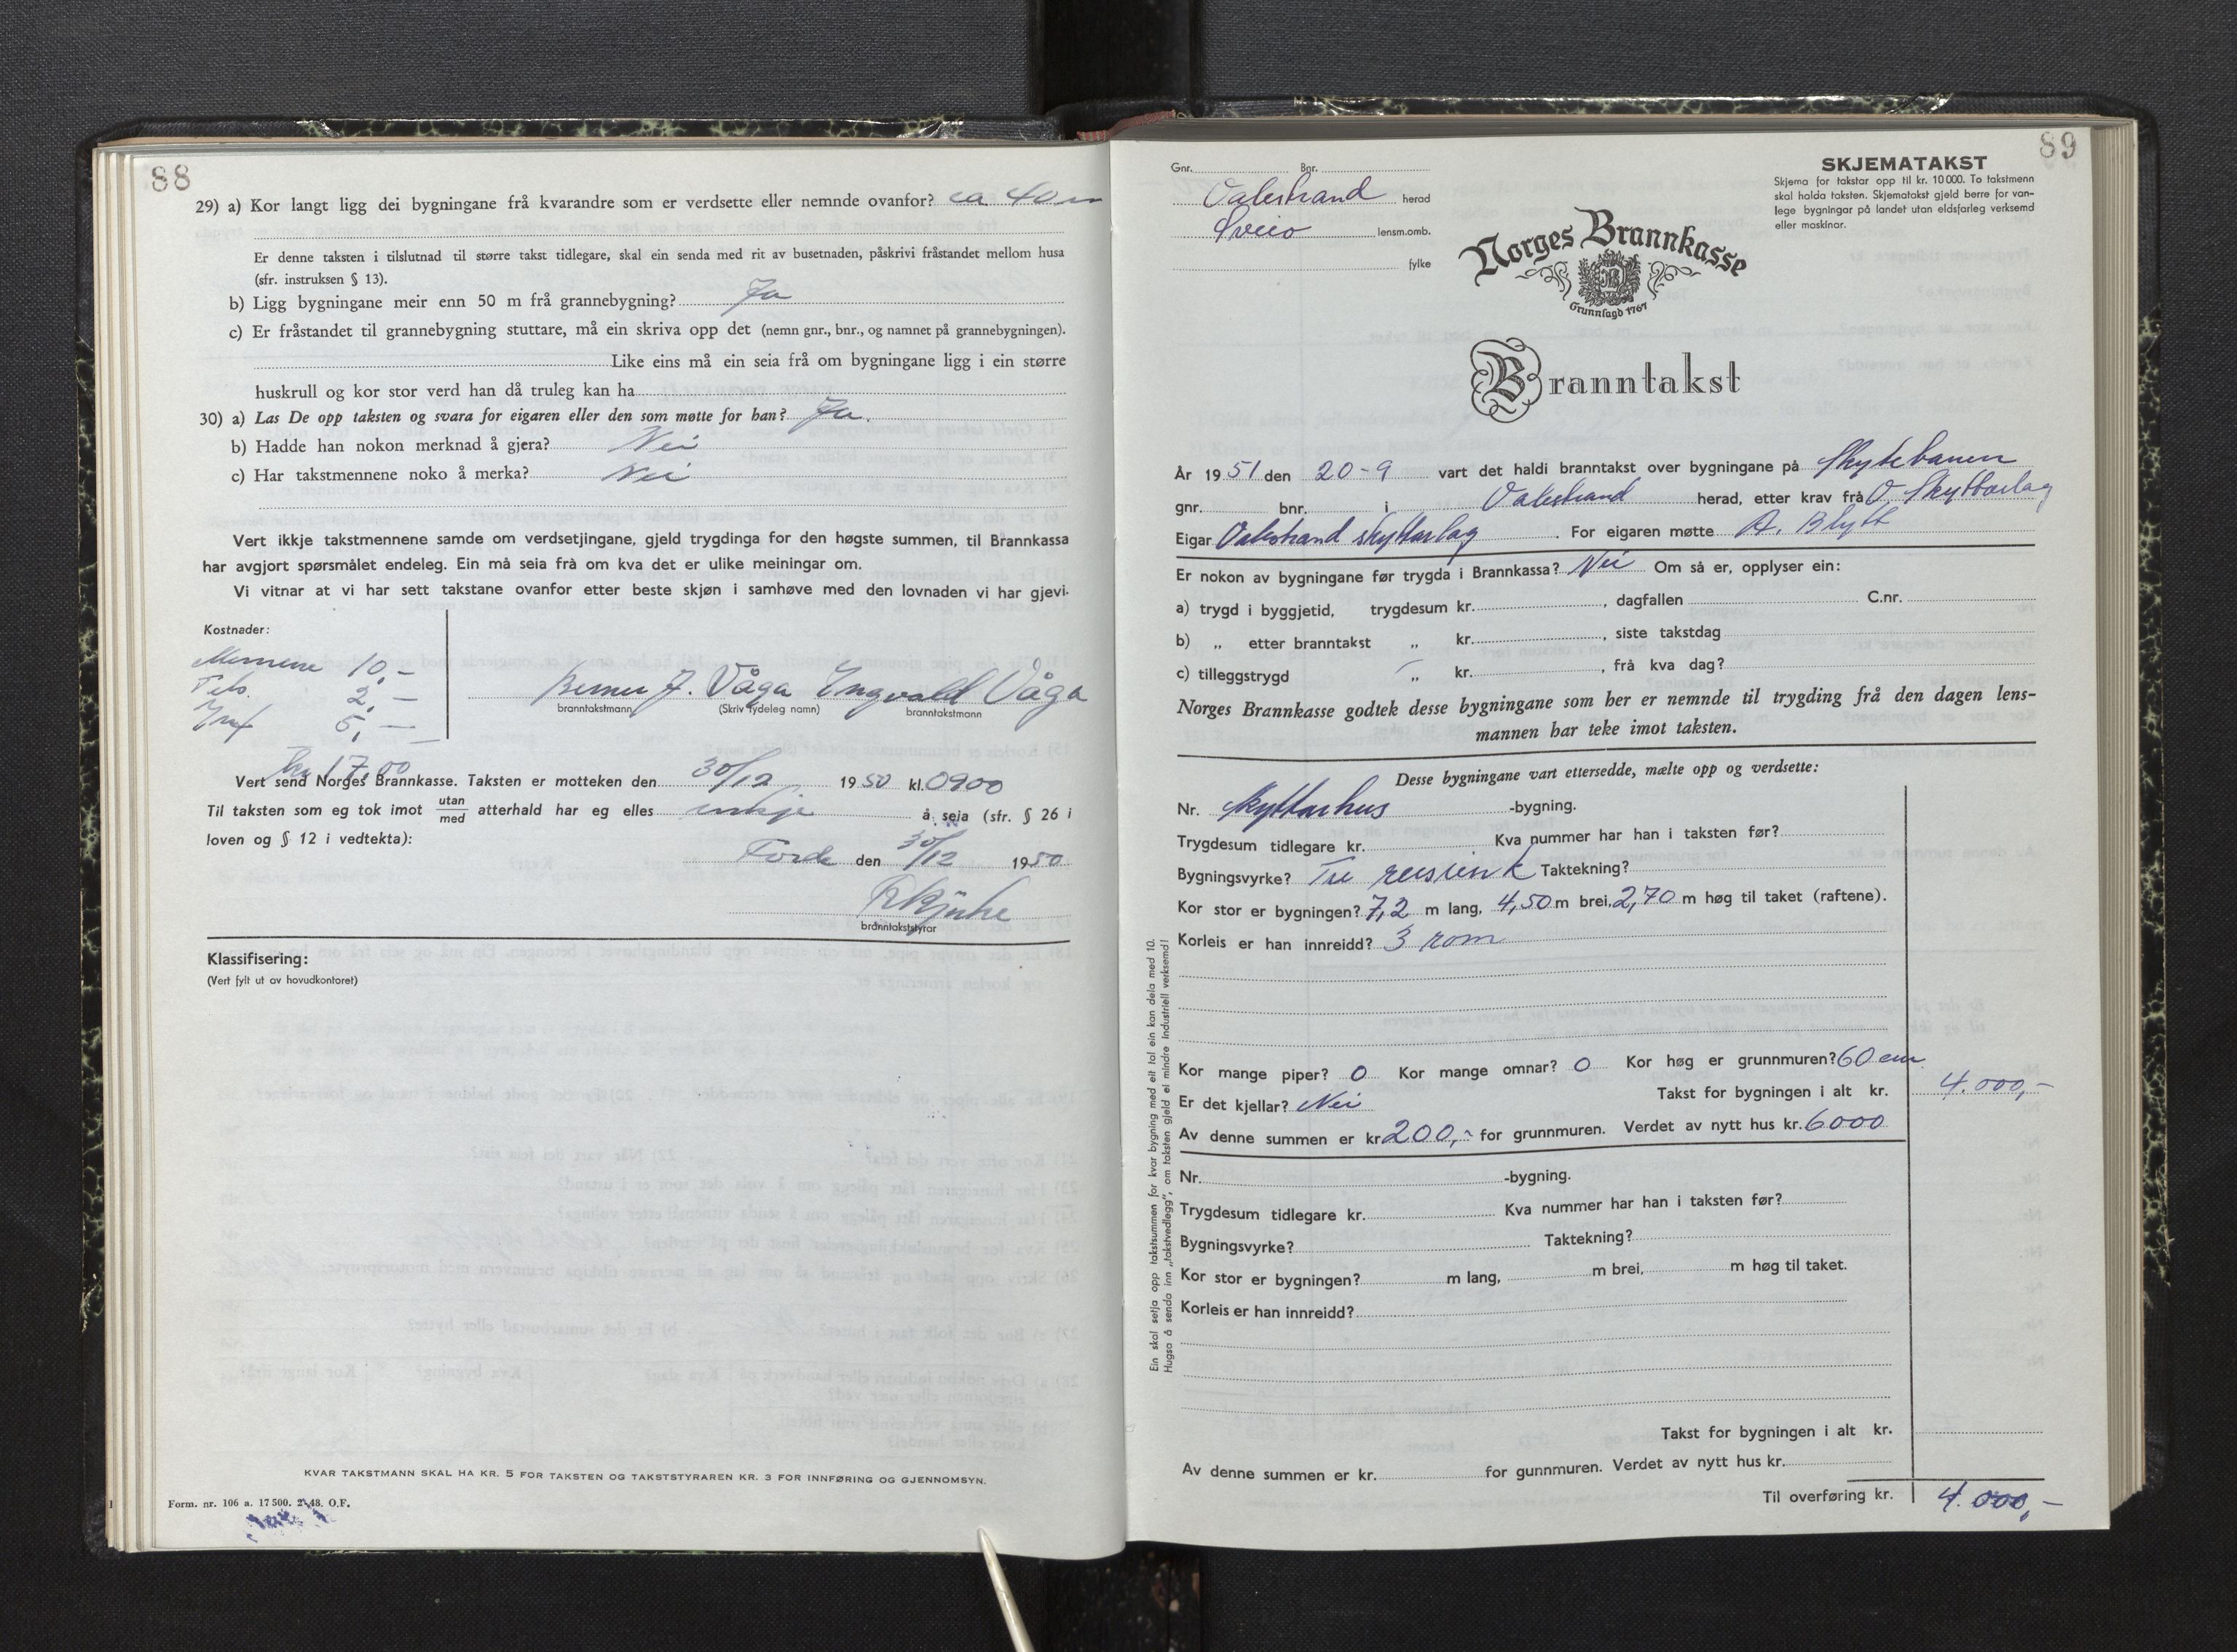 88
29) a) Kor langt ligg dei bygningane frå kvarandre som er verdsette eller nemnde ovanfor? ca 40 m
Er denne taksten i tilslutnad til større takst tidlegare, skal ein senda med rit av busetnaden, påskrivi fråstandet mellom husa
(sfr. instruksen § 13).
b) Ligg bygningane meir enn 50 m frå grannebygning? Ja
c) Er fråstandet til grannebygning stuttare, må ein skriva opp det (nemn gnr., bnr., og namnet på grannebygningen).
Like eins må ein seia frå om bygningane ligg i ein større
huskrull og kor stor verd han då truleg kan ha
30) a) Las De opp taksten og svara for eigaren eller den som møtte for han? Ja.
b) Hadde han nokon merknad å gjera? Nei
c) Har takstmennene noko å merka? Nei
Vert ikkje takstmennene samde om verdsetjingane, gjeld trygdinga for den høgste summen, til Brannkassa
har avgjort spørsmålet endeleg. Ein må seia frå om kva det er ulike meiningar om.
Vi vitnar at vi har sett takstane ovanfor etter beste skjøn i samhøve med den lovnaden vi har gjevi.
Kostnader:
Mennene 10,-
2,-
5,-
Berner J. Våga Engvald Våga
branntakstmann (Skriv tydeleg namn) branntakstmann
kr 17,00
Vert send Norges Brannkasse. Taksten er motteken den 30/12 1950 kl. 0900
Til taksten som eg tok imot utan/med atterhald har eg elles inkje å seia (sfr. § 26 i
loven og § 12 i vedtekta):
Førde den 30/12 1950
branntakststyrar
Klassifisering:
(Vert fylt ut av hovudkontoret)
KVAR TAKSTMANN SKAL HA KR. 5 FOR TAKSTEN OG TAKSTSTYRAREN KR. 3 FOR INNFØRING OG GJENNOMSYN.
Form. nr. 106 a. 17 500. 2-48. O.F.
89
Gnr. Bnr.
Valestrand herad
Sveio lensm.omb.
fylke
SKJEMATAKST
Skjema for takstar opp til kr. 10 000. To takstmenn
skal halda taksten. Skjematakst gjeld berre for van-
lege bygningar på landet utan eldsfarleg verksemd
eller maskinar.
Norges Brannkasse
Grunnlagd 1767
Branntakst
År 1951 den 20-9 vart det haldi branntakst over bygningane på Skytebanen
gnr. bnr. i Valestrand herad, etter krav frå V. Skyttarlag
Eigar Valestrand skyttarlag. For eigaren møtte A. Blytt
Er nokon av bygningane før trygda i Brannkassa? Nei Om så er, opplyser ein:
a) trygd i byggjetid, trygdesum kr. , dagfallen C.nr.
b) „ etter branntakst „ kr. , siste takstdag
c) tilleggstrygd „ kr. , frå kva dag?
Norges Brannkasse godtek desse bygningane som her er nemnde til trygding frå den dagen lens-
mannen har teke imot taksten.
Desse bygningane vart ettersedde, mælte opp og verdsette:
Nr. Skyttarhus -bygning.
Trygdesum tidlegare kr. Kva nummer har han i taksten før?
Bygningsvyrke? Tre reisverk Taktekning?
Kor stor er bygningen? 7,2 m lang, 4,50 m brei, 2,70 m høg til taket (raftene).
Korleis er han innreidd? 3 rom
Kor mange piper? 0 Kor mange omnar? 0 Kor høg er grunnmuren? 60 cm
Er det kjellar? Nei Takst for bygningen i alt kr. 4.000,-
Av denne summen er kr 200,- for grunnmuren. Verdet av nytt hus kr. 6000
Nr. -bygning.
Trygdesum tidlegare kr. Kva nummer har han i taksten før?
Bygningsvyrke? Taktekning?
Kor stor er bygningen? m lang, m brei, m høg til taket.
Korleis er han innreidd?
Takst for bygningen i alt kr.
Av denne summen er kr. for gunnmuren. Verdet av nytt hus kr.
Til overføring kr. 4.000,-
Ein skal setja opp takstsummen for kvar bygning med eit tal ein kan dela med 10.
Hugsa å senda inn „takstvedlegg", om taksten gjeld ei mindre industriell verksemd!